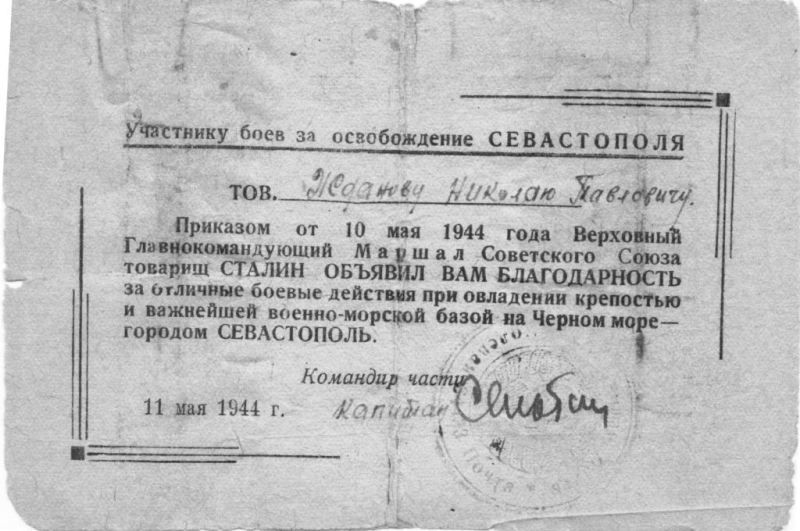 Участнику боев за освобождение СЕВАСТОПОЛЯ
ТОВ. Жданову Николаю Павловичу.
Приказом от 10 мая 1944 года Верховный
Главнокомандующий Маршал Советского Союза
товарищ СТАЛИН ОБЪЯВИЛ ВАМ БЛАГОДАРНОСТЬ
за отличные боевые действия при овладении крепостью
и важнейшей военно-морской базой на Черном море—
городом СЕВАСТОПОЛЬ.
Командир части
11 мая 1944 г. капитан
Почта